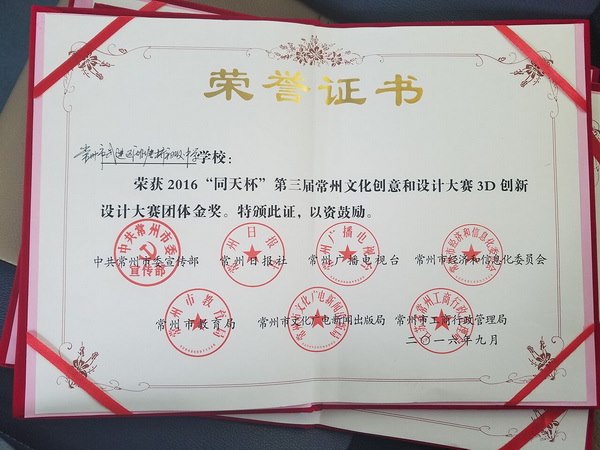 荣誉证书
常州市武进区 学校：
荣获2016“同天杯”第三届常州文化创意和设计大赛3D创新
设计大赛团体金奖。特颁此证，以资鼓励。
中共常州市委宣传部 常州日报社 常州广播电视台 常州市经济和信息化委员会
中共常州市委
宣传部
常州日报社
常州广播电视台
常州市经济和信息化委员会
常州市教育局 常州市文化广电新闻出版局 常州市工商行政管理局
常州市教育局
常州市文化广电新闻出版局
常州工商行政管理局
二〇一六年九月